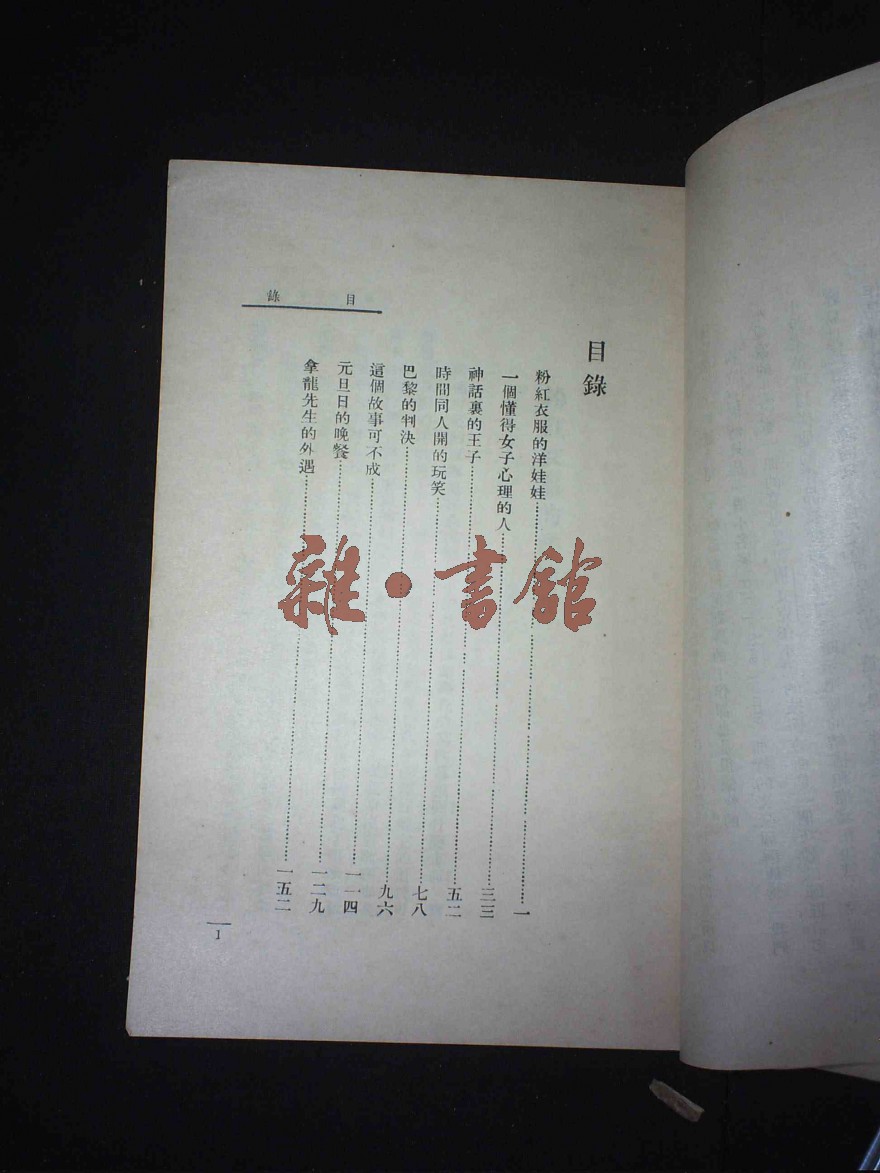 目錄
目錄
粉紅衣服的洋娃娃……一
一個懂得女子心理的人……三三
神話裏的王子……五二
時間同人開的玩笑……七八
巴黎的判決……九六
這個故事可不成……一一四
元旦日的晚餐……一二九
拿龍先生的外遇……一五二
1
雜·書館